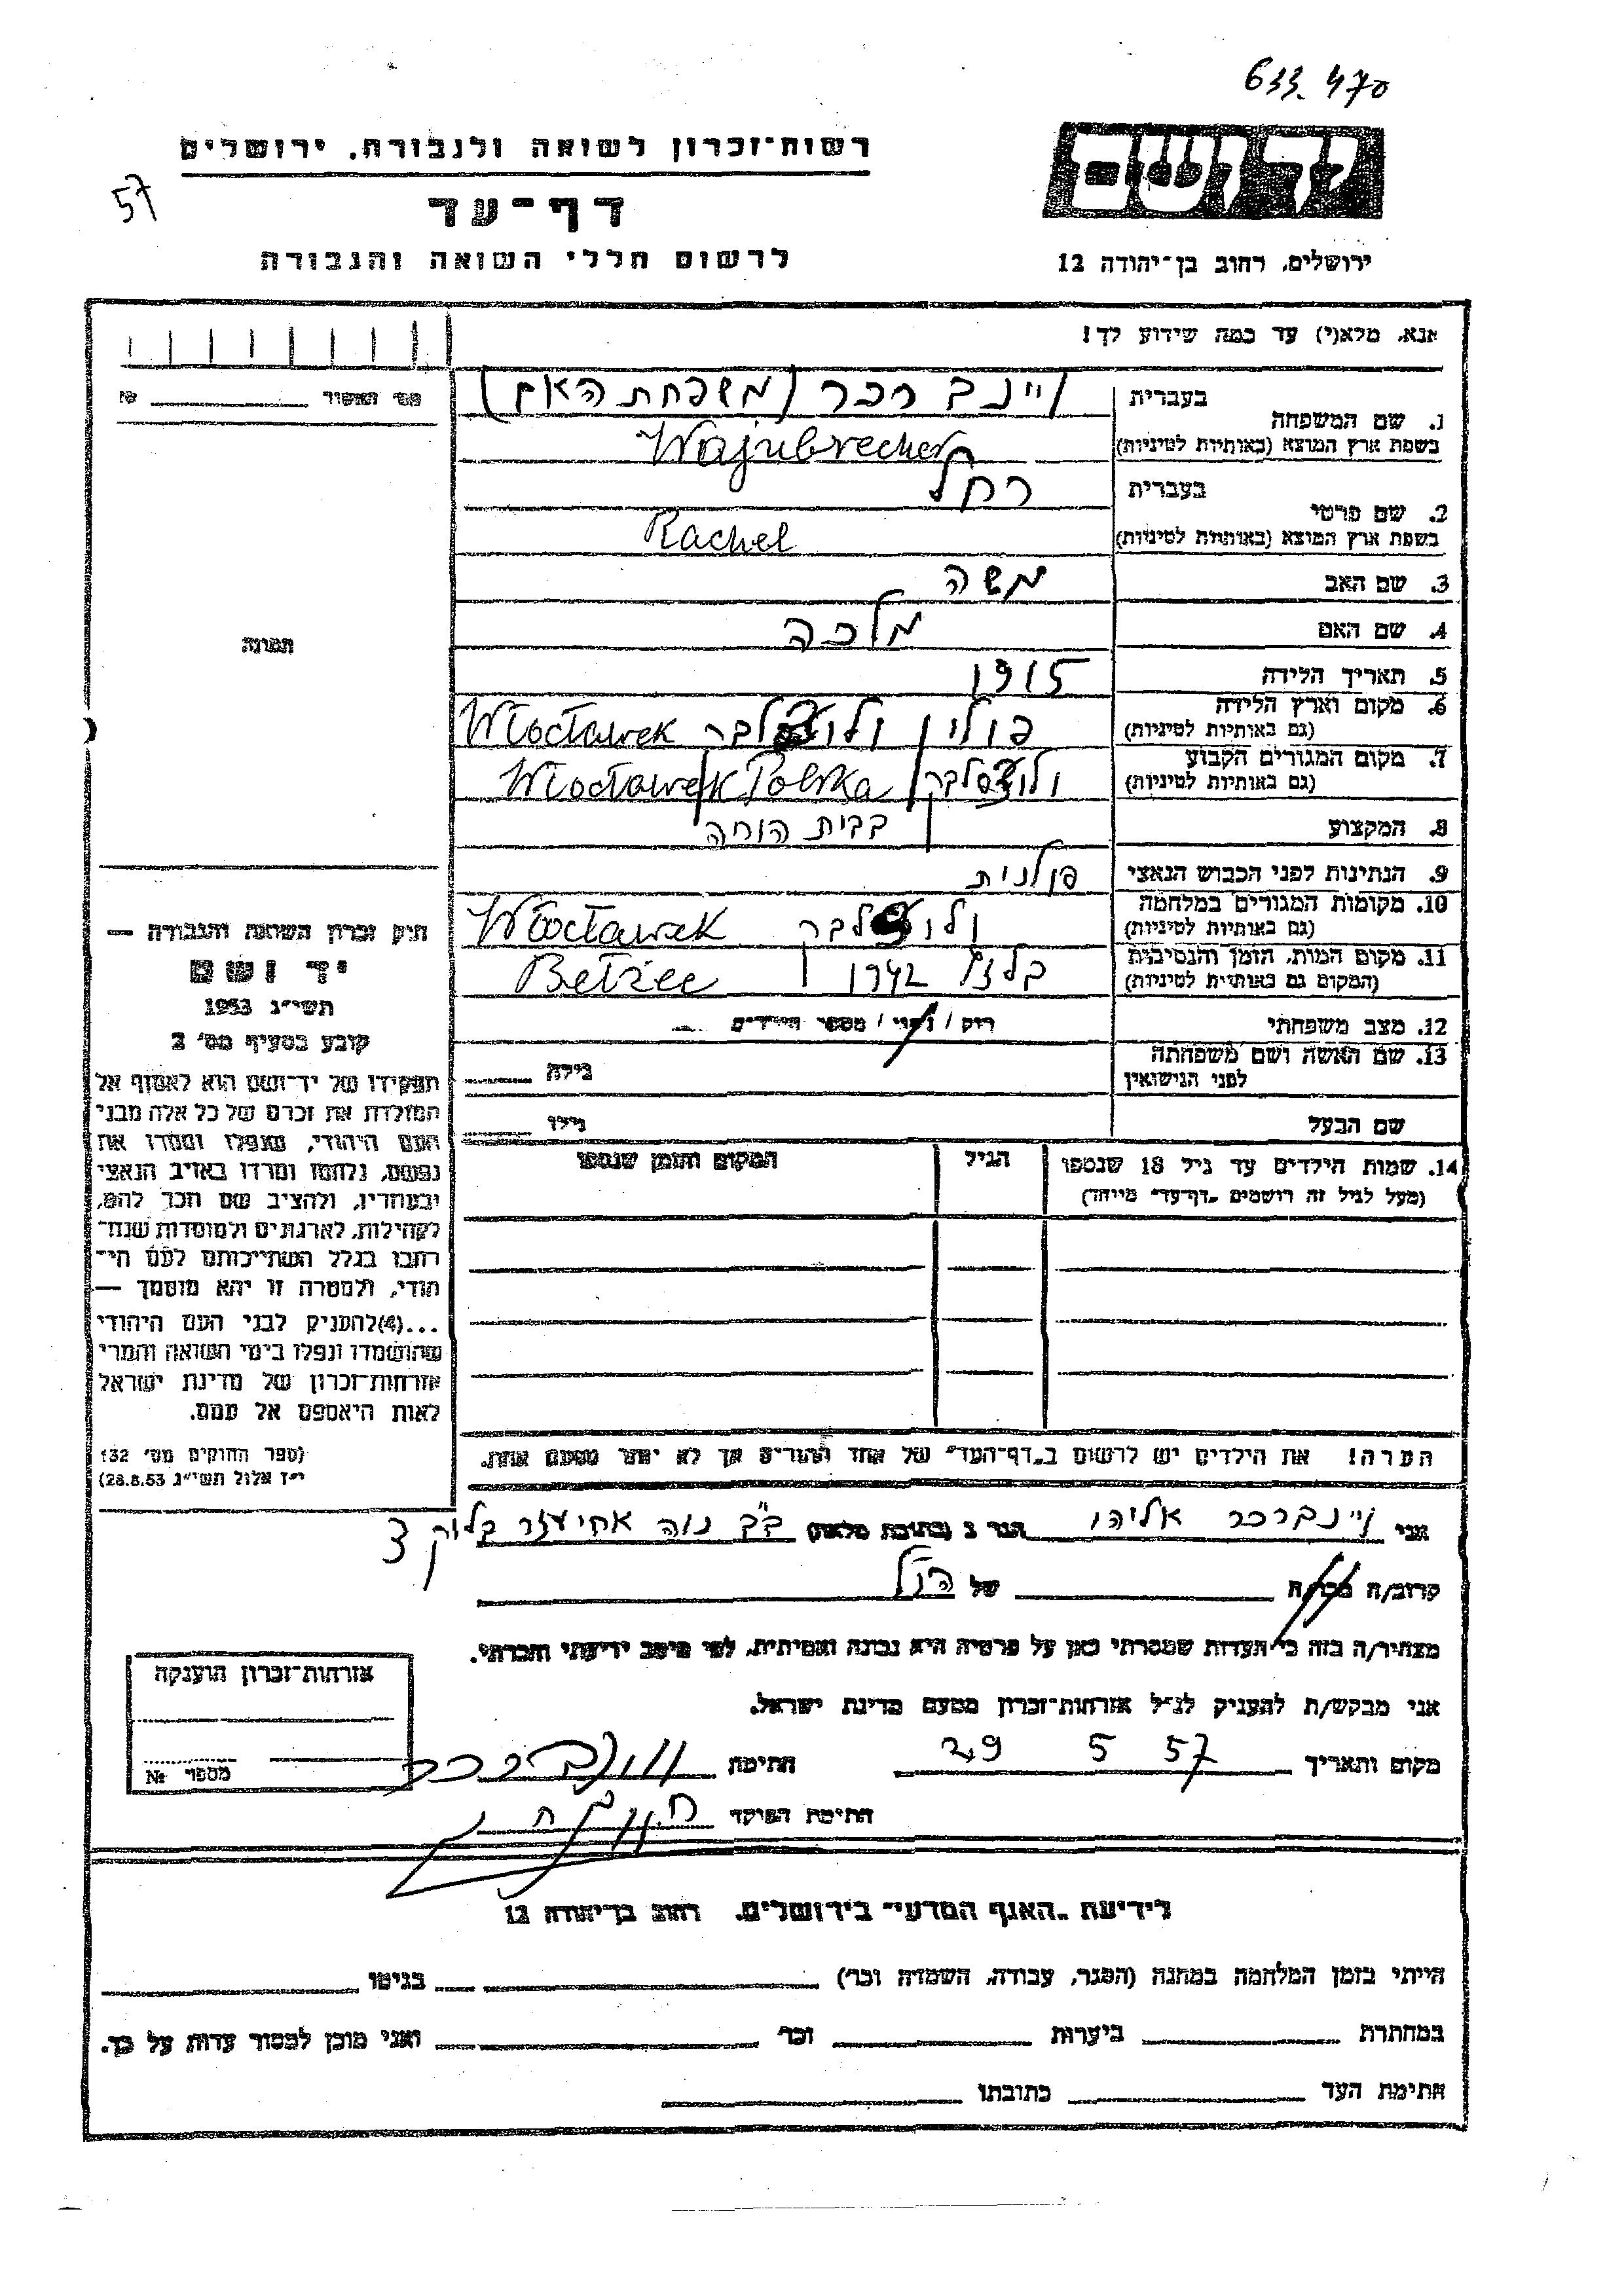 633.470
רשות־זכרון לשואה ולגבורה, ירושלים
יד ושם
57
דף־עד
לרשום חללי השואה והגבורה
ירושלים, רחוב בן־יהודה 12
אנא, מלא(י) עד כמה שידוע לך!
1. שם המשפחה
בעברית
ויינברכר (משפחת האם)
בשפת ארץ המוצא (באותיות לטיניות)
Wajnbrecher
2. שם פרטי
בעברית
רחל
בשפת ארץ המוצא (באותיות לטיניות)
Rachel
3. שם האב
משה
4. שם האם
מלכה
5. תאריך הלידה
1915
6. מקום וארץ הלידה
(גם באותיות לטיניות)
פולין Włocławek
7. מקום המגורים הקבוע
(גם באותיות לטיניות)
Włocławek Polska
8. המקצוע
בבית הוריה
9. הנתינות לפני הכבוש הנאצי
פולנית
10. מקומות המגורים במלחמה
(גם באותיות לטיניות)
Włocławek
11. מקום המות, הזמן והנסיבות
(המקום גם באותיות לטיניות)
1942 Bełżec
12. מצב משפחתי
רוק / נשוי / מספר הילדים
13. שם האשה ושם משפחתה
לפני הנישואין
גילה
שם הבעל
גילו
14. שמות הילדים עד גיל 18 שנספו
(מעל לגיל זה רושמים „דף־עד״ מיוחד)
הגיל
המקום והזמן שנספו
הערה! את הילדים יש לרשום ב„דף־העד״ של אחד ההורים אך לא יותר מפעם אחת.
מס׳ האשור №
תמונה
חוק זכרון השואה והגבורה —
יד ושם
תשי״ג 1953
קובע בסעיף מס׳ 2
תפקידו של יד־ושם הוא לאסוף אל
המולדת את זכרם של כל אלה מבני
העם היהודי, שנפלו ומסרו את
נפשם, נלחמו ומרדו באויב הנאצי
ובעוזריו, ולהציב שם וזכר להם,
לקהילות, לארגונים ולמוסדות שנח־
רבו בגלל השתייכותם לעם הי־
הודי, ולמטרה זו יהא מוסמך —
...(4)להעניק לבני העם היהודי
שהושמדו ונפלו בימי השואה והמרי
אזרחות־זכרון של מדינת ישראל
לאות היאספם אל עמם.
(ספר החוקים מס׳ 132
י״ז אלול תשי״ג 28.8.53)
אני ויינברכר אליהו הגר ב (כתובת מלאה) ב״ב נוה אחיעזר בלוק 3
קרוב/ה מכר/ה של הנ״ל
מצהיר/ה בזה כי העדות שמסרתי כאן על פרטיה היא נכונה ואמיתית, לפי מיטב ידיעתי והכרתי.
אני מבקש/ת להעניק לנ״ל אזרחות־זכרון מטעם מדינת ישראל.
מקום ותאריך 29 5 57 חתימה ויינברכר
חתימת הפוקד
אזרחות־זכרון הוענקה
מספר №
לידיעת „האגף המדעי״ בירושלים, רחוב בן־יהודה 12
הייתי בזמן המלחמה במחנה (הסגר, עבודה, השמדה וכו׳) בגיטו
במחתרת ביערות וכו׳ ואני מוכן למסור עדות על כך.
חתימת העד כתובתו